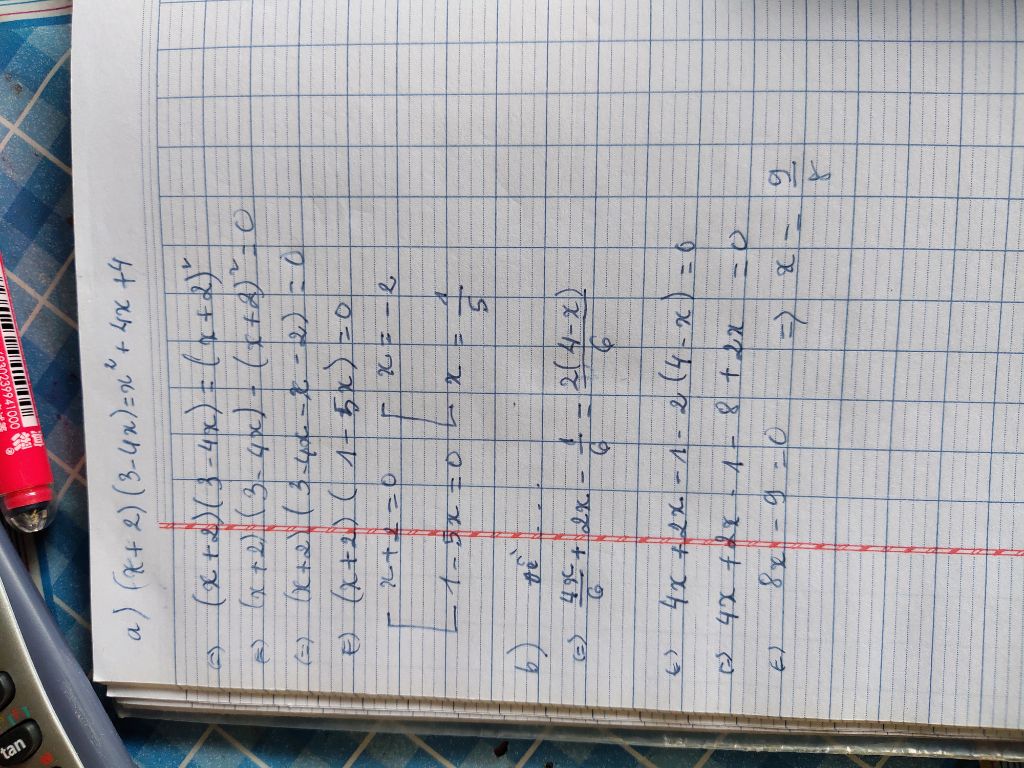 a) (x+2)(3-4x)=x²+4x+4
(=) (x+2)(3-4x)=(x+2)²
(=) (x+2)(3-4x)-(x+2)²=0
(=) (x+2)(3-4x-x-2)=0
(=) (x+2)(1-5x)=0
[ x+2=0 [ x=-2
[ 1-5x=0 [ x=1/5
b) đề ...
(=) 4x/6 + 2x-1/6 = 2(4-x)/6
(=) 4x+2x-1-2(4-x)=0
(=) 4x+2x-1-8+2x=0
(=) 8x-9=0 => x = 9/8
tan